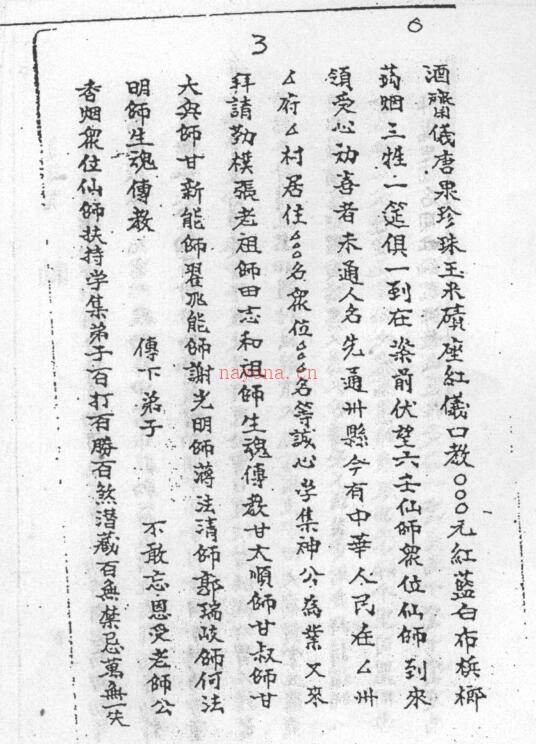 6
3
酒齋儀唐果珍珠玉米磧座紅儀口教〇〇〇元紅藍白布梹榔
蒟烟三牲一筵俱一到在案前伏望六壬仙師眾位仙師到來
領受心劝喜者未通人名先通州縣今有中華人民在厶州
厶府厶村居住厶厶厶名眾位厶厶厶名等誠心学集神公為業又來
拜請勤樸張老祖師田志和祖師生魂傳教甘大順師甘叔師甘
大與師甘新能師翟兆能師謝光明師蔣法清師郭瑞岐師何法
明師生魂傳教 傳下弟子 不敢忘恩受老師公
香烟眾位仙師扶持学集弟子百打百勝百煞潜藏百無禁忌萬無一失
nayona.cn